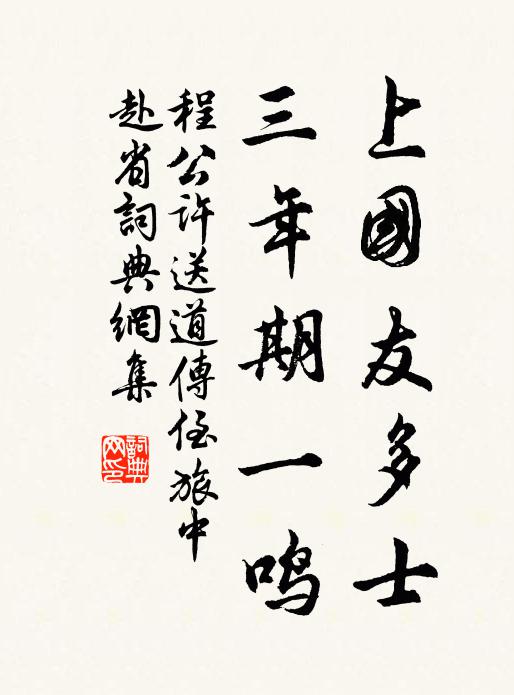 上國友多士
三年期一鳴
程公許送道傳侄旅中
赴省詞典網集
詞典
网印